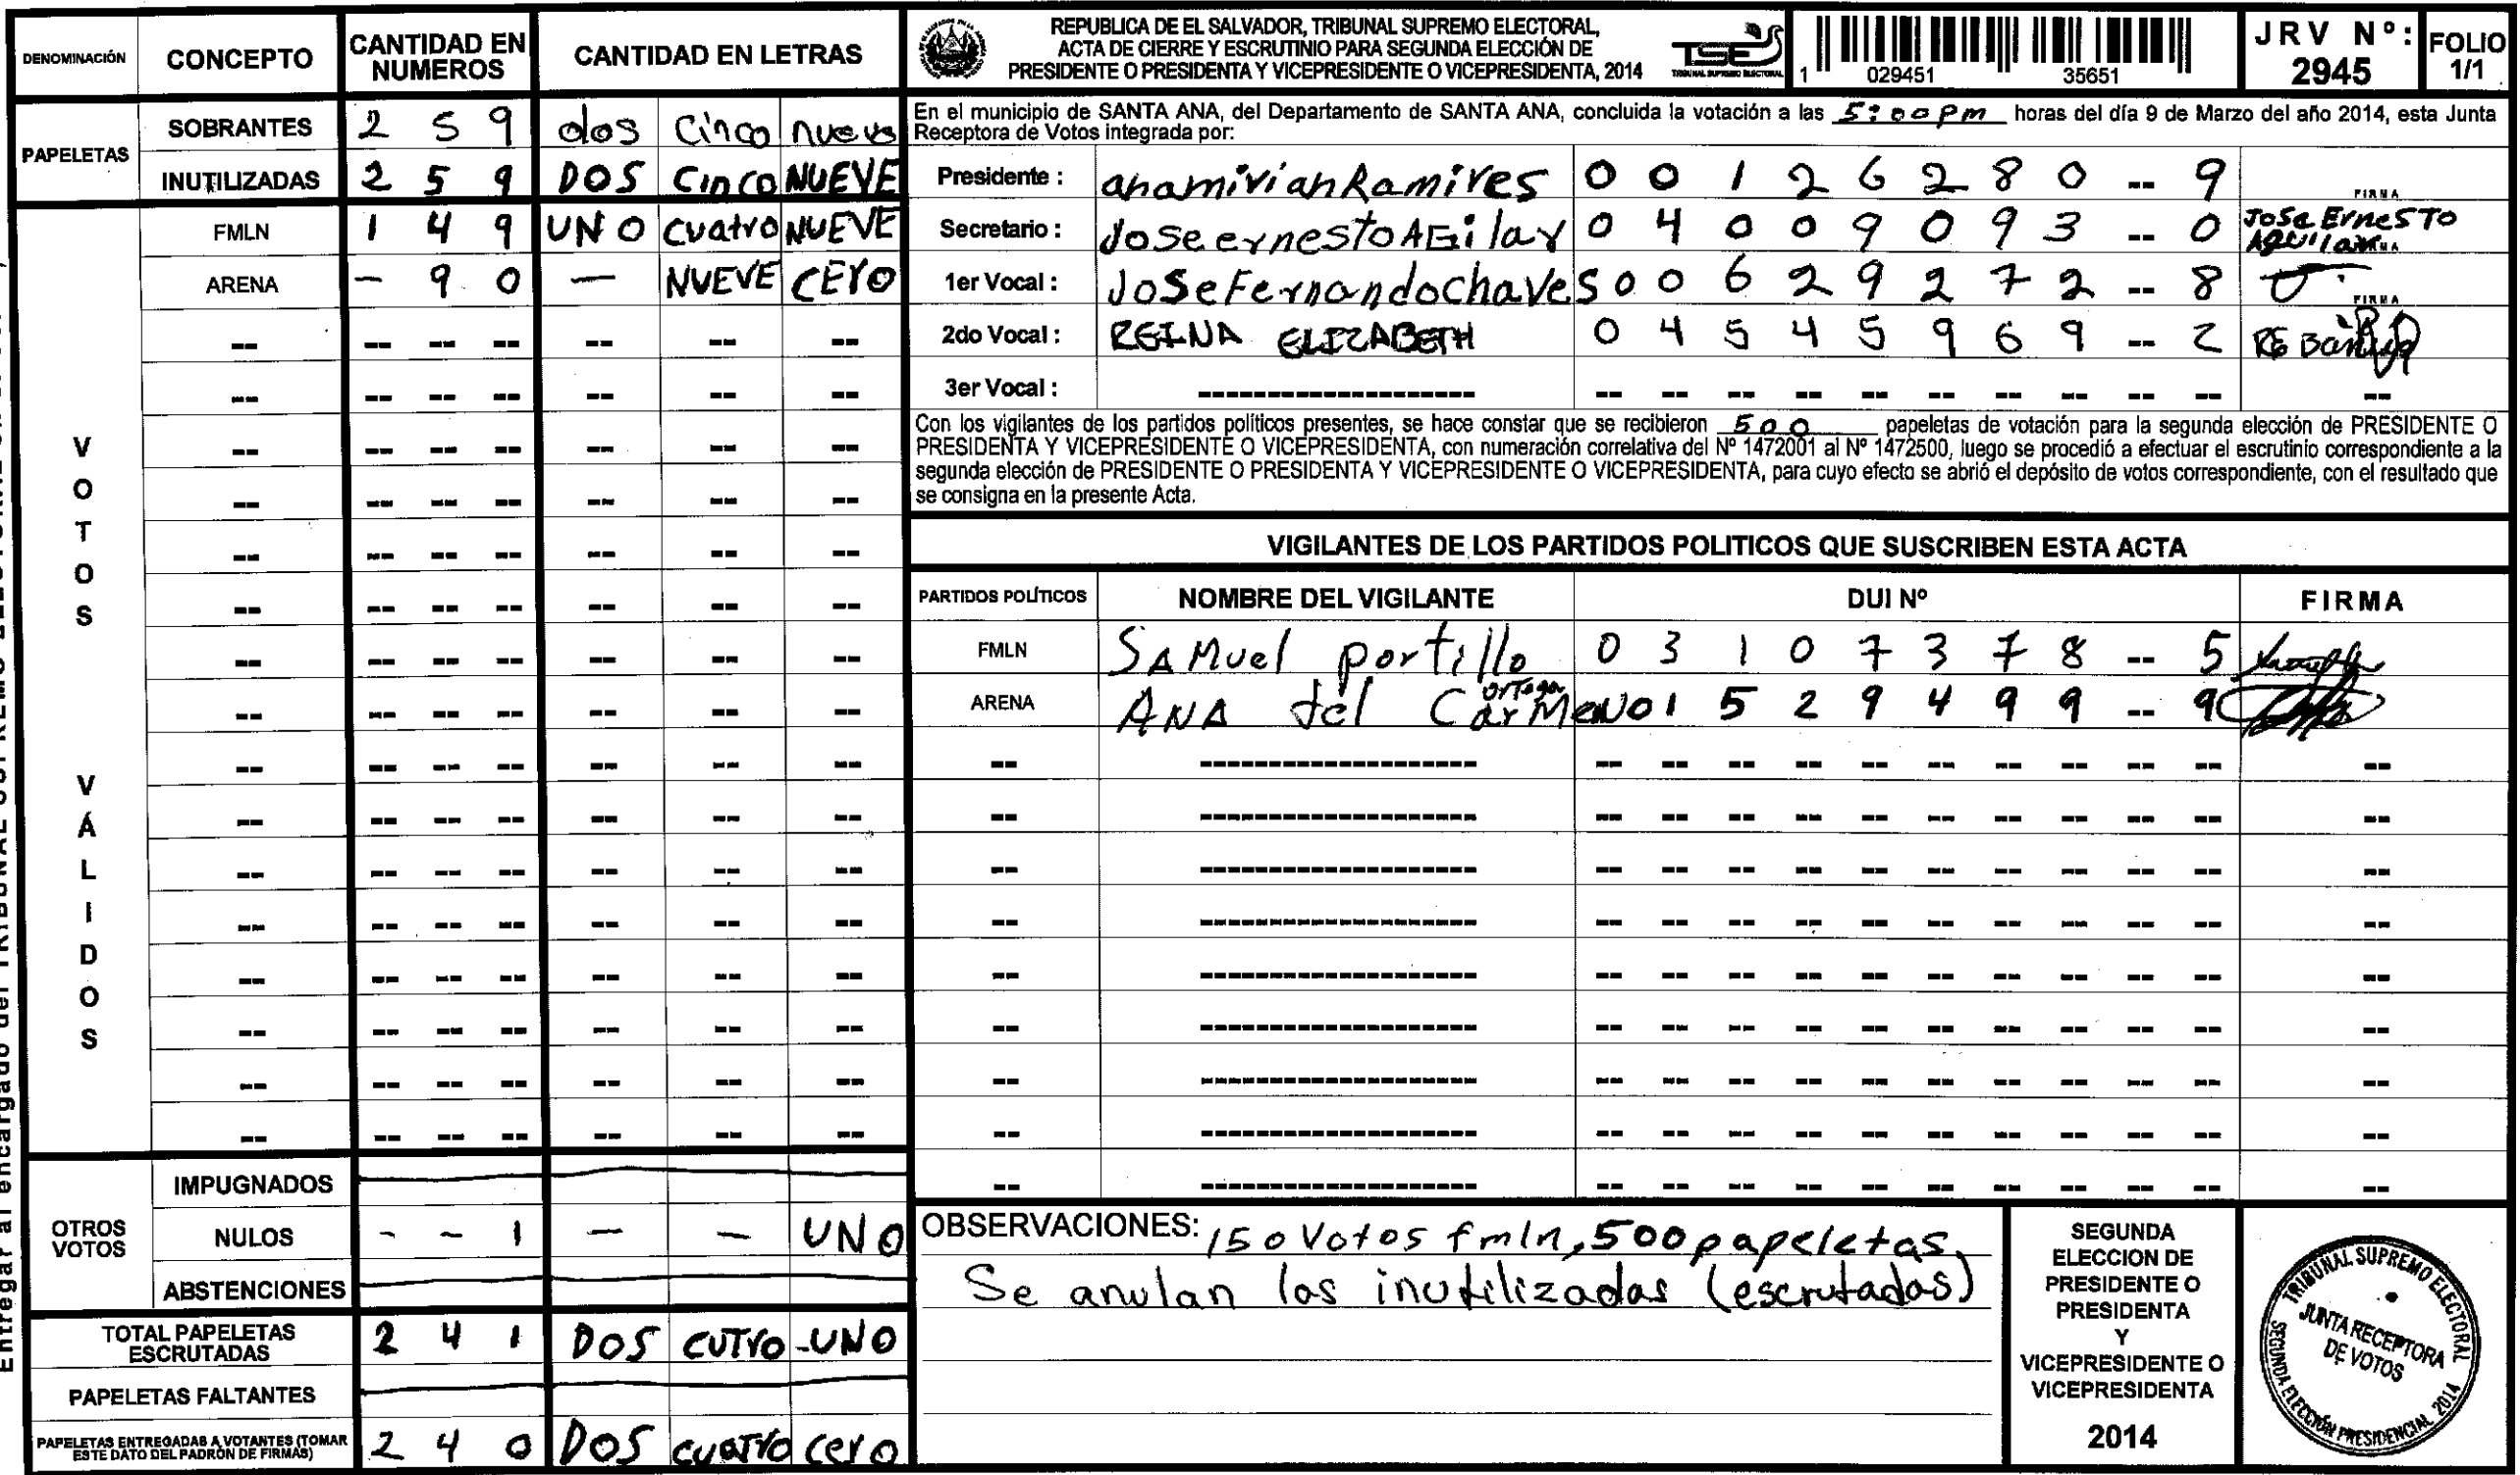 DENOMINACIÓN CONCEPTO CANTIDAD EN NUMEROS CANTIDAD EN LETRAS
PAPELETAS
SOBRANTES 2 5 9 dos Cinco nueve
INUTILIZADAS 2 5 9 DOS CINCO NUEVE
VOTOS VÁLIDOS
FMLN 1 4 9 UNO CUATRO NUEVE
ARENA - 9 0 — NUEVE CERO
OTROS VOTOS
IMPUGNADOS
NULOS - - 1 — — UNO
ABSTENCIONES
TOTAL PAPELETAS ESCRUTADAS 2 4 1 DOS CUTRO - UNO
PAPELETAS FALTANTES
PAPELETAS ENTREGADAS A VOTANTES (TOMAR ESTE DATO DEL PADRÓN DE FIRMAS) 2 4 0 DOS CUATRO CERO
REPUBLICA DE EL SALVADOR, TRIBUNAL SUPREMO ELECTORAL,
ACTA DE CIERRE Y ESCRUTINIO PARA SEGUNDA ELECCIÓN DE
PRESIDENTE O PRESIDENTA Y VICEPRESIDENTE O VICEPRESIDENTA, 2014
TSE
TRIBUNAL SUPREMO ELECTORAL
1 029451 35651
JRV Nº: 2945
FOLIO 1/1
En el municipio de SANTA ANA, del Departamento de SANTA ANA, concluida la votación a las 5:00 pm horas del día 9 de Marzo del año 2014, esta Junta
Receptora de Votos integrada por:
Presidente : anamivian Ramires 0 0 1 2 6 2 8 0 -- 9 FIRMA
Secretario : Jose ernesto AGilar 0 4 0 0 9 0 9 3 -- 0 JOSE ERNESTO AGUILAR
1er Vocal : Jose Fernando chaves 0 0 6 2 9 2 7 2 -- 8 FIRMA
2do Vocal : REINA ELIZABETH 0 4 5 4 5 9 6 9 -- 2
3er Vocal :
Con los vigilantes de los partidos políticos presentes, se hace constar que se recibieron 500 papeletas de votación para la segunda elección de PRESIDENTE O
PRESIDENTA Y VICEPRESIDENTE O VICEPRESIDENTA, con numeración correlativa del Nº 1472001 al Nº 1472500, luego se procedió a efectuar el escrutinio correspondiente a la
segunda elección de PRESIDENTE O PRESIDENTA Y VICEPRESIDENTE O VICEPRESIDENTA, para cuyo efecto se abrió el depósito de votos correspondiente, con el resultado que
se consigna en la presente Acta.
VIGILANTES DE LOS PARTIDOS POLITICOS QUE SUSCRIBEN ESTA ACTA
PARTIDOS POLÍTICOS NOMBRE DEL VIGILANTE DUI Nº FIRMA
FMLN SAMuel portillo 0 3 1 0 7 3 7 8 -- 5
ARENA ANA del CarMeN ortega 0 1 5 2 9 4 9 9 -- 9
OBSERVACIONES: 150 Votos fmln, 500 papeletas,
Se anulan las inutilizadas (escrutadas)
SEGUNDA
ELECCION DE
PRESIDENTE O
PRESIDENTA
Y
VICEPRESIDENTE O
VICEPRESIDENTA
2014
TRIBUNAL SUPREMO ELECTORAL
JUNTA RECEPTORA
DE VOTOS
SEGUNDA ELECCIÓN PRESIDENCIAL 2014